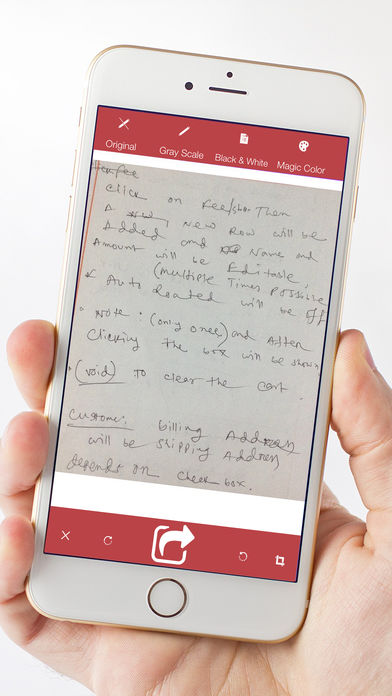 Original
Gray Scale
Black & White
Magic Color
Click on Fee/Shor Then
A New Row will be
Added and Name and
Amount will be Editable,
(multiple Times possible
& Auto will be off
Note: (only once) and After
Clicking the box will be shown
(void) To clear the cart.
Customer: billing Address
will be shipping Address
depends on check box.